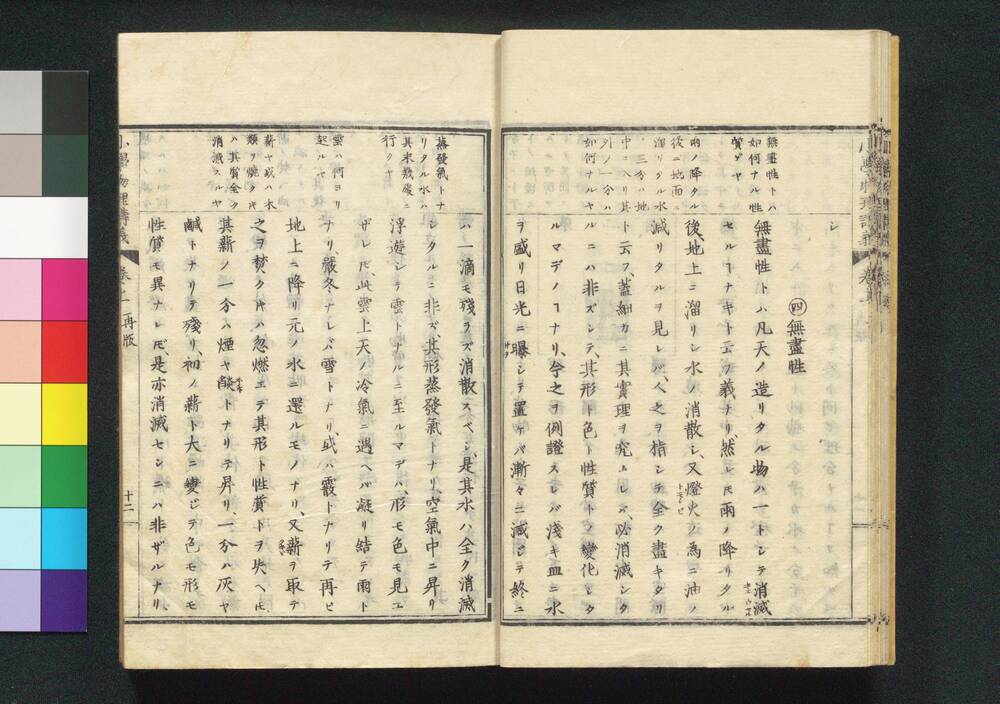 シ
㊃無盡性
無盡性トハ凡天ノ造リタル物ハ一トシテ消滅
セルヿナキト云フ義ナリ然レ𪜈雨ノ降リタル
後、地上ニ溜リシ水ノ消散シ、又燈火ノ為ニ油ノ
減リタルヲ見レバ、人之ヲ指シテ全ク盡キタリ
ト云フ、蓋細カニ其實理ヲ究ムレバ、必消滅シタ
ルニハ非ズシテ、其形ト色ト性質トノ變化シタ
ルマデノヿナリ、今之ヲ例證スレバ淺キ皿ニ水
ヲ盛リ日光ニ曝シテ置ケバ漸々ニ減ジテ終ニ
無盡性トハ
如何ナル性
質ゾヤ
雨ノ降タル
後ニ地面ニ
溜リタル水
ノ三分ハ地
中ニ入リ其
外ノ一分ハ
如何ナルヤ
ハ一滴モ殘ラズ消散スベシ、是其水ハ全ク消滅
シタルニ非ズ、其形蒸發氣トナリ、空氣中ニ昇リ
浮遊シテ雲トナルニ至ルマデハ、形モ色モ見エ
ザレ𪜈、此雲上天ノ冷氣ニ遇ヘバ凝リ結テ雨ト
ナリ、嚴冬ナレバ雪トナリ、或ハ霰トナリテ再ビ
地上ニ降リ元ノ水ニ還ルモノナリ、又薪ヲ取テ
之ヲ焚ク𪜈ハ忽燃エテ其形ト性質トヲ失ヘ𪜈、
其薪ノ一分ハ煙ヤ燄トナリテ昇リ、一分ハ灰ヤ
鹹トナリテ殘リ、初ノ薪ト大ニ變ジテ色モ形モ
性質モ異ナレ𪜈、是亦消滅セシニハ非ザルナリ、
蒸發氣トナ
リタル水ハ
其末幾處ニ
行クヤ
雲ハ何ヨリ
起ルヤ
薪ヤ或ハ木
類ヲ燒クキ
ハ其質全ク
消滅スルヤ
小學物理講義 卷上 再版 十二